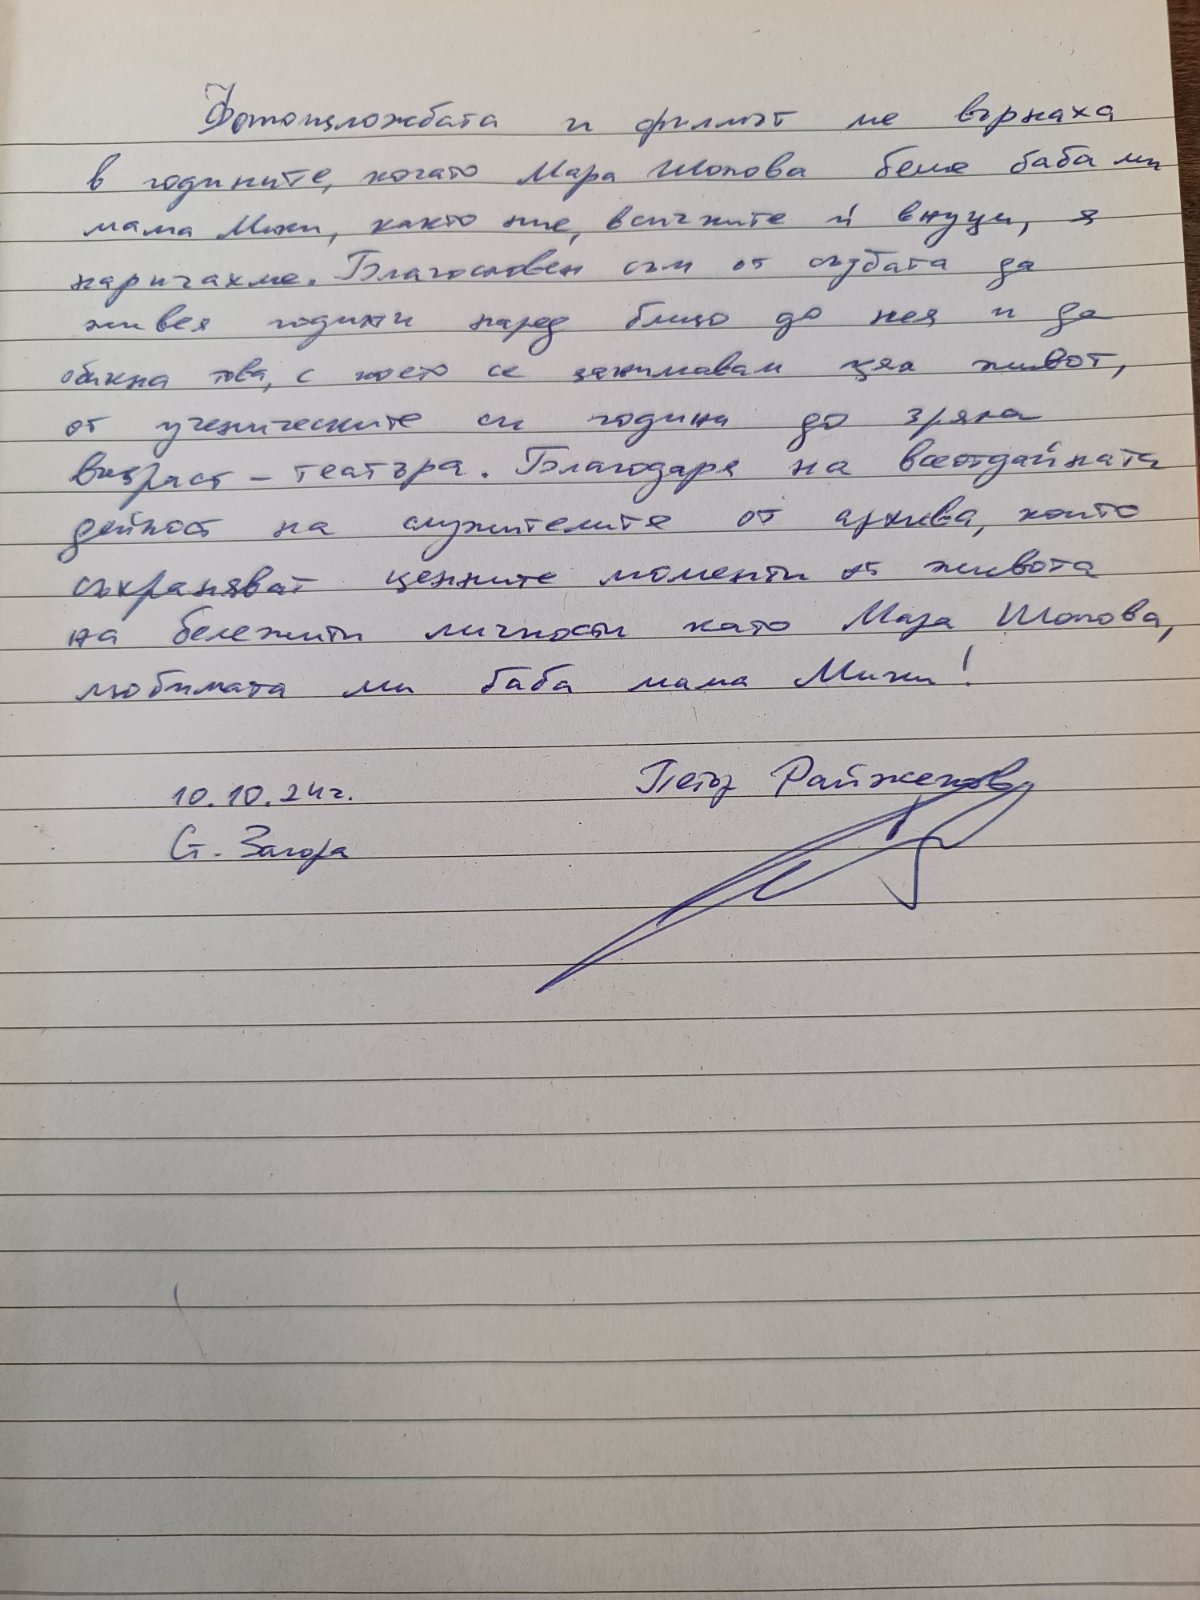 Фотоизложбата и филмът ме върнаха
в годините, когато Мара Шопова беше баба ми
мама Мики, както ние, всичките ѝ внуци, я
наричахме. Благословен съм от съдбата да
живея години наред близо до нея и да
обикна това, с което се занимавам цял живот,
от ученическите си години до зряла
възраст – театъра. Благодаря на всеотдайната
дейност на служителите от архива, които
съхраняват ценните моменти от живота
на бележити личности като Мара Шопова,
любимата ми баба мама Мики!
10.10.24г. Петър Райжеков
Ст. Загора